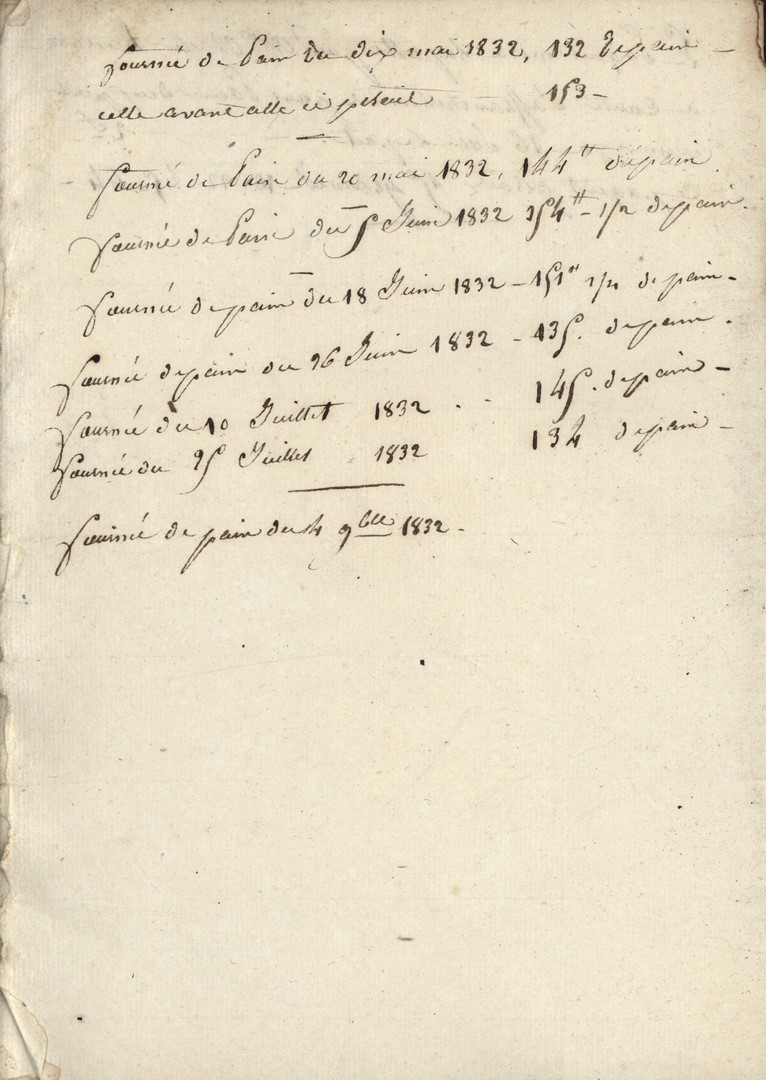 fournée de Pain du dix mai 1832, 132 de pain –
celle avant elle ci pesait 153 –
fournée de Pain du 20 mai 1832, 144 ₶ de pain
fournée de Pain du 5 Juin 1832 154 ₶ – 1/2 de pain.
fournée de pain du 18 Juin 1832 – 151 ₶ 1/2 de pain –
fournée de pain du 26 Juin 1832 – 135. de pain.
fournée du 10 Juillet 1832 . . 145. de pain –
fournée du 25 Juillet 1832 134 de pain –
fournée de pain du 4 9bre 1832 –